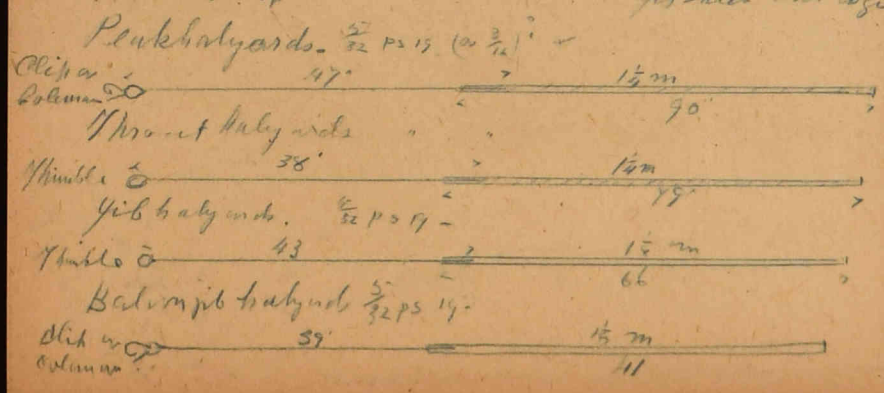 Peak halyards. 5/32 ps 19 (or 3/16)
Clip or 47' 1 1/4 m
Coleman 90'
Throat halyards " "
Thimble 38' 1 1/4 m
79'
Jib halyards. 5/32 ps 19 -
Thimble 43 1 1/4 m
66
Balloon jib halyard 5/32 ps 19-
Clip or 39' m
Coleman 41